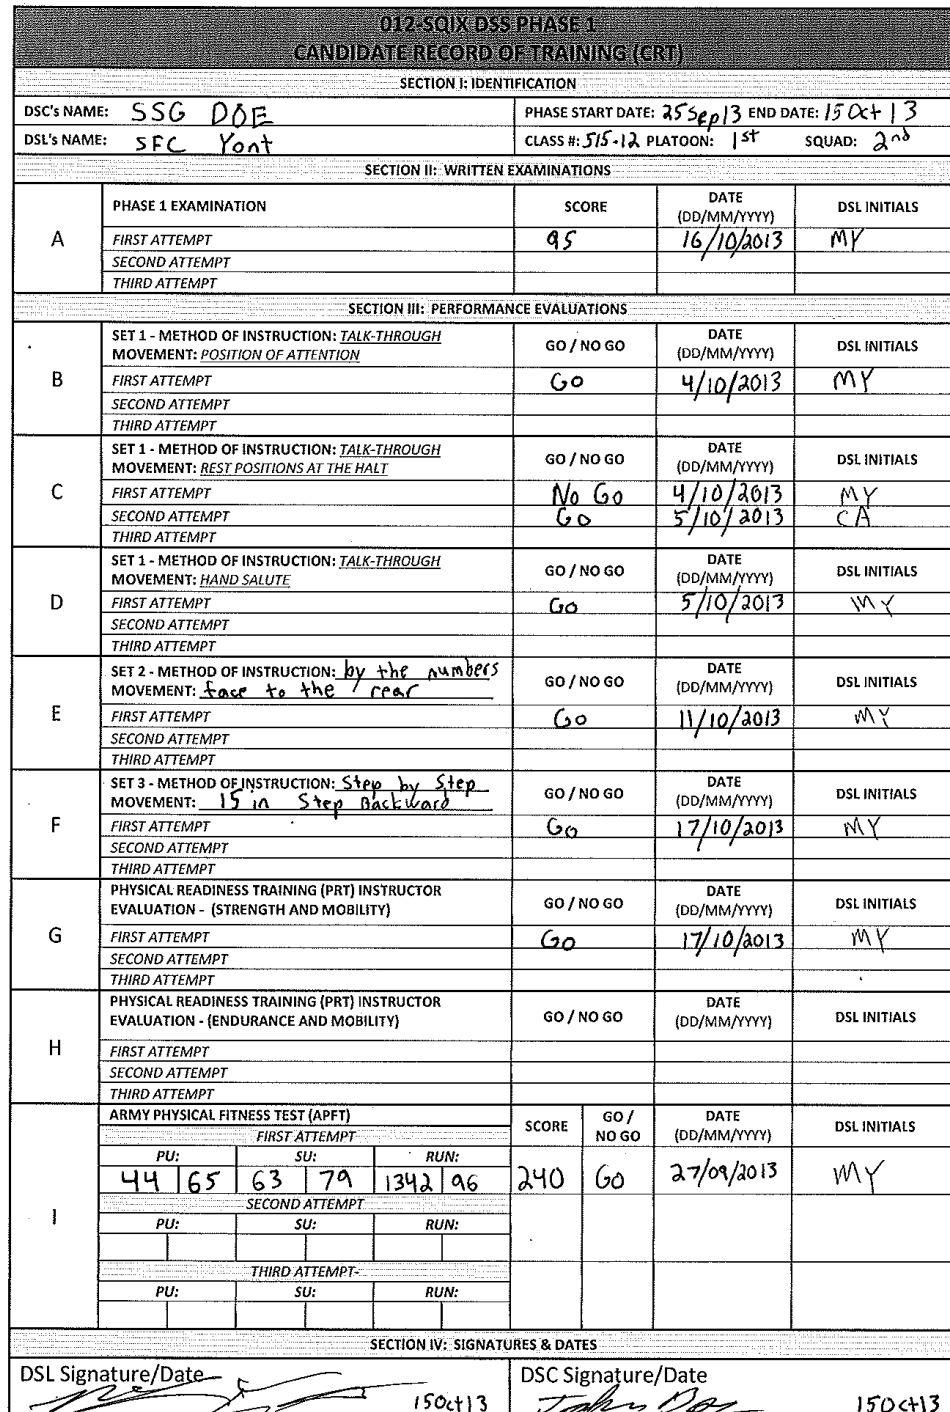 012-SQIX DSS PHASE 1
CANDIDATE RECORD OF TRAINING (CRT)
SECTION I: IDENTIFICATION
DSC's NAME: SSG DOE PHASE START DATE: 25 Sep 13 END DATE: 15 Oct 13
DSL's NAME: SFC Yont CLASS #: 515-12 PLATOON: 1st SQUAD: 2nd
SECTION II: WRITTEN EXAMINATIONS
A PHASE 1 EXAMINATION SCORE DATE (DD/MM/YYYY) DSL INITIALS
FIRST ATTEMPT 95 16/10/2013 MY
SECOND ATTEMPT
THIRD ATTEMPT
SECTION III: PERFORMANCE EVALUATIONS
B SET 1 - METHOD OF INSTRUCTION: TALK-THROUGH
MOVEMENT: POSITION OF ATTENTION GO / NO GO DATE (DD/MM/YYYY) DSL INITIALS
FIRST ATTEMPT Go 4/10/2013 MY
SECOND ATTEMPT
THIRD ATTEMPT
C SET 1 - METHOD OF INSTRUCTION: TALK-THROUGH
MOVEMENT: REST POSITIONS AT THE HALT GO / NO GO DATE (DD/MM/YYYY) DSL INITIALS
FIRST ATTEMPT No Go 4/10/2013 MY
SECOND ATTEMPT Go 5/10/2013 CA
THIRD ATTEMPT
D SET 1 - METHOD OF INSTRUCTION: TALK-THROUGH
MOVEMENT: HAND SALUTE GO / NO GO DATE (DD/MM/YYYY) DSL INITIALS
FIRST ATTEMPT Go 5/10/2013 MY
SECOND ATTEMPT
THIRD ATTEMPT
E SET 2 - METHOD OF INSTRUCTION: by the numbers
MOVEMENT: face to the rear GO / NO GO DATE (DD/MM/YYYY) DSL INITIALS
FIRST ATTEMPT Go 11/10/2013 MY
SECOND ATTEMPT
THIRD ATTEMPT
F SET 3 - METHOD OF INSTRUCTION: Step by Step
MOVEMENT: 15 in Step Backward GO / NO GO DATE (DD/MM/YYYY) DSL INITIALS
FIRST ATTEMPT Go 17/10/2013 MY
SECOND ATTEMPT
THIRD ATTEMPT
G PHYSICAL READINESS TRAINING (PRT) INSTRUCTOR
EVALUATION - (STRENGTH AND MOBILITY) GO / NO GO DATE (DD/MM/YYYY) DSL INITIALS
FIRST ATTEMPT Go 17/10/2013 MY
SECOND ATTEMPT
THIRD ATTEMPT
H PHYSICAL READINESS TRAINING (PRT) INSTRUCTOR
EVALUATION - (ENDURANCE AND MOBILITY) GO / NO GO DATE (DD/MM/YYYY) DSL INITIALS
FIRST ATTEMPT
SECOND ATTEMPT
THIRD ATTEMPT
I ARMY PHYSICAL FITNESS TEST (APFT) SCORE GO / NO GO DATE (DD/MM/YYYY) DSL INITIALS
FIRST ATTEMPT
PU: SU: RUN:
44 65 63 79 1342 96 240 Go 27/09/2013 MY
SECOND ATTEMPT
PU: SU: RUN:
THIRD ATTEMPT-
PU: SU: RUN:
SECTION IV: SIGNATURES & DATES
DSL Signature/Date DSC Signature/Date
15Oct13 John Doe 15Oct13